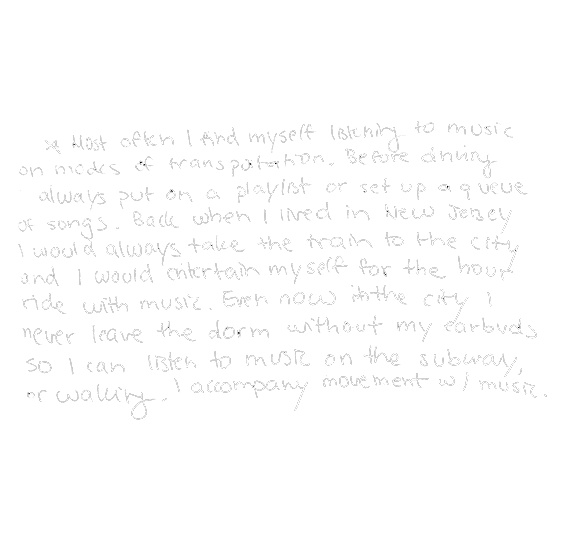 Most often I find myself listening to music
on modes of transportation. Before driving
always put on a playlist or set up a queue
of songs. Back when I lived in New Jersey
I would always take the train to the city,
and I would entertain myself for the hour
ride with music. Even now in the city I
never leave the dorm without my earbuds
so I can listen to music on the subway,
or walking. I accompany movement w/ music.